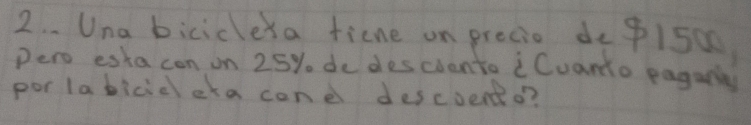 2.- Una bicicleta tiene un precio de $1500,
pero esta con un 25% de descuento ¿Cuanto pagarias
por la bicicleta con el descuento?